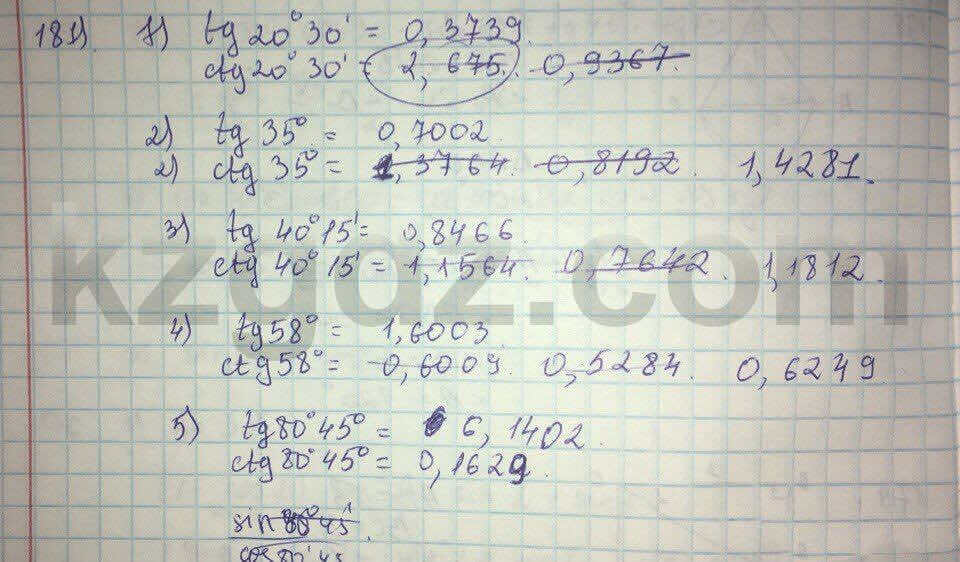 181). 1) tg 20° 30' = 0,3739.
ctg 20° 30' = 2,675. 0,9367.
2) tg 35° = 0,7002.
2) ctg 35° = 1,3764. 0,8192. 1,4281.
3) tg 40° 15' = 0,8466.
ctg 40° 15' = 1,1564. 0,7642. 1,1812.
kzgdz.com
4) tg 58° = 1,6003.
ctg 58° = 0,6009. 0,5284. 0,6249.
5) tg 80° 45° = 6,1402.
ctg 80° 45° = 0,1629.
sin 80° 45'
cos 80' 45